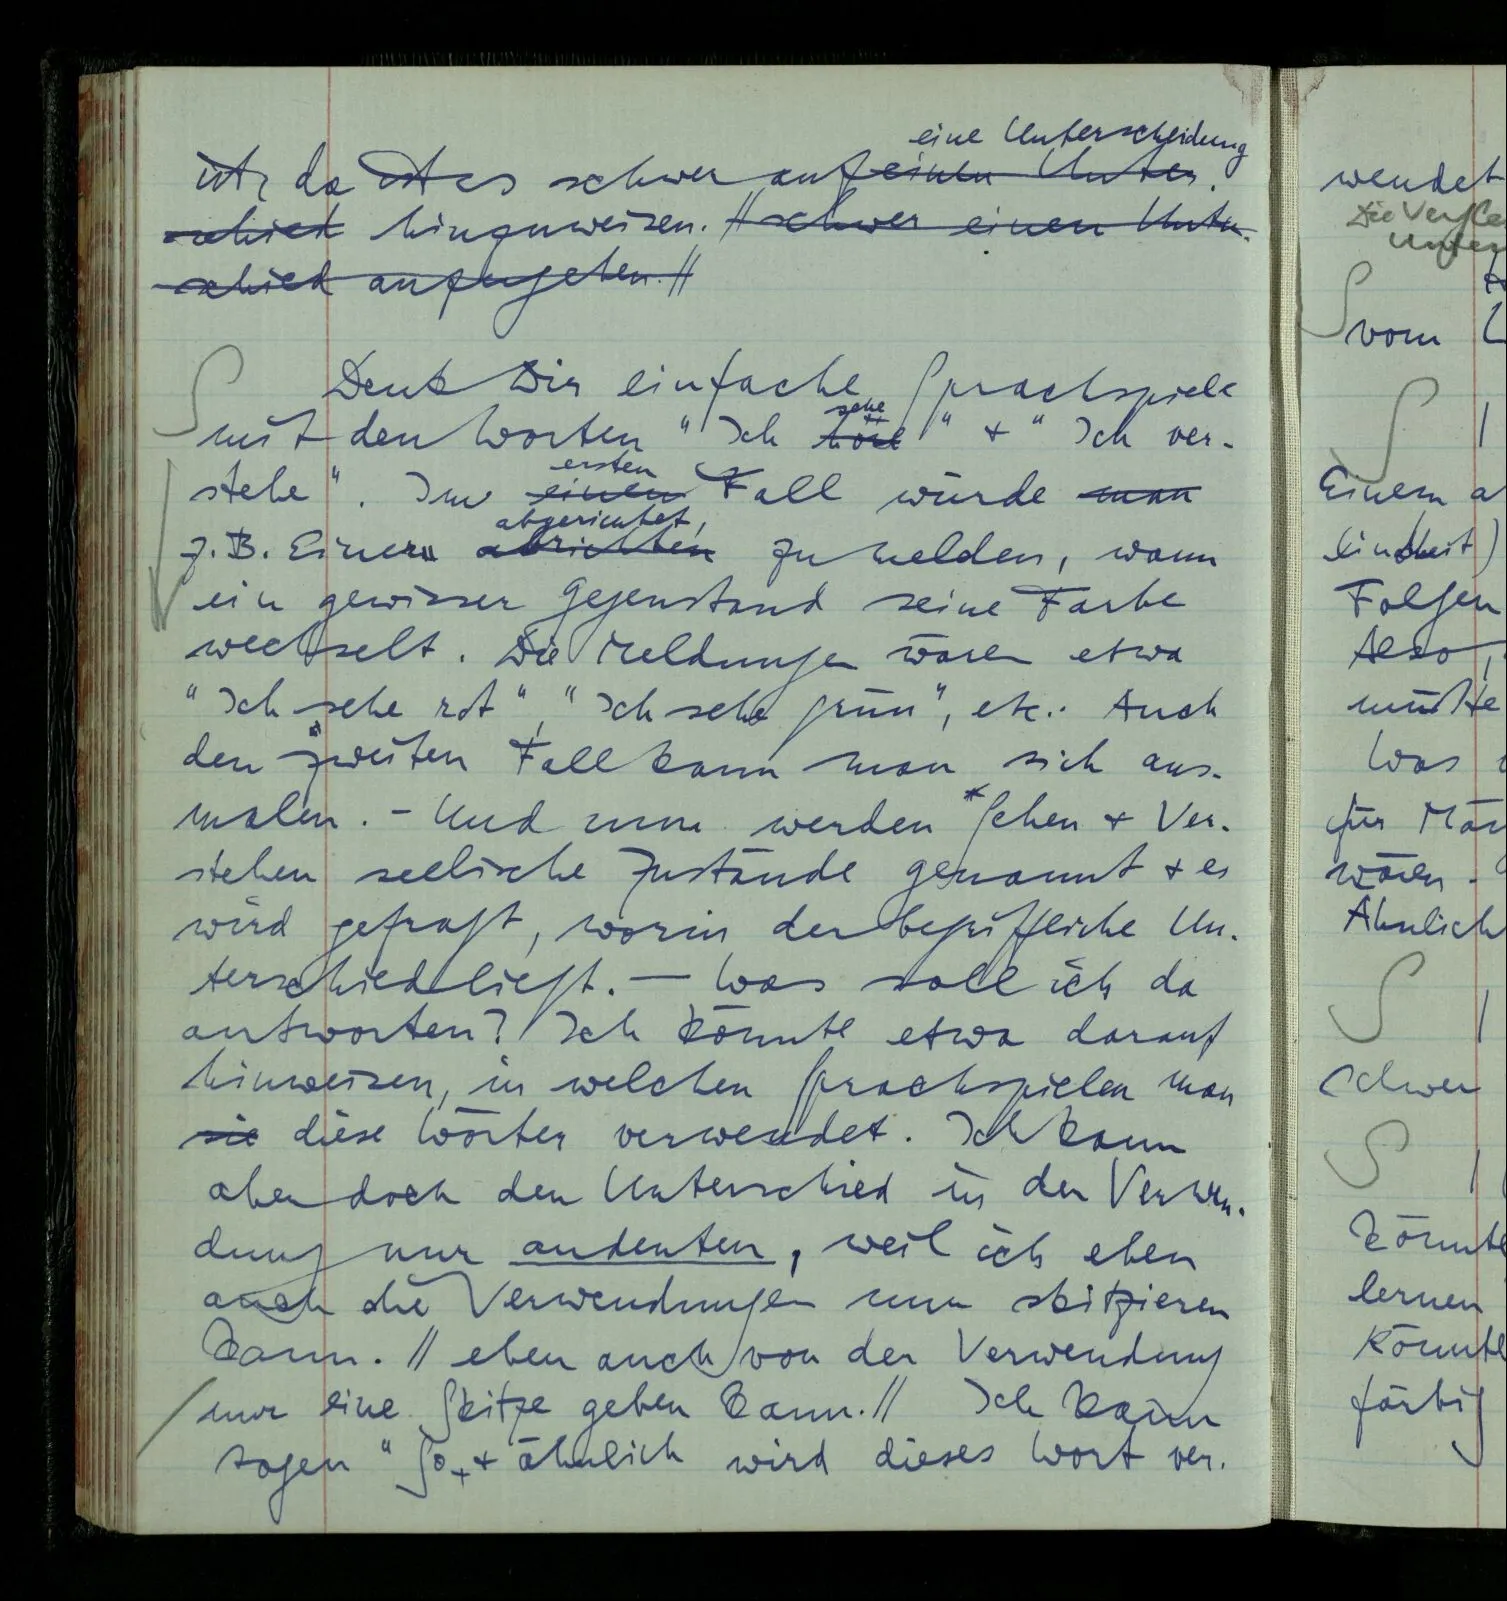 eine Unterscheidung
ist, da ist es schwer auf einen Unter-
schied hinzuweisen. // schwer einen Unter-
schied anzugeben. //
Denk Dir einfache Sprachspiele
sehe
mit den Worten "Ich höre" + "Ich ver-
ersten
stehe". Im einen Fall würde man
abgerichtet,
z.B. Einer abrichten zu melden, wann
ein gewisser Gegenstand seine Farbe
wechselt. Die Meldungen wären etwa
"Ich sehe rot", "Ich sehe grün", etc.. Auch
den zweiten Fall kann man sich aus-
malen. – Und nun werden Sehen + Ver-
stehen seelische Zustände genannt + es
wird gefragt, worin der begriffliche Un-
terschied liegt. – Was soll ich da
antworten? Ich könnte etwa darauf
hinweisen, in welchen Sprachspielen man
sie diese Wörter verwendet. Ich kann
aber doch den Unterschied in der Verwen-
dung nur andeuten, weil ich eben
auch die Verwendungen nur skitzieren
kann. // eben auch von der Verwendung
nur eine Skitze geben kann. // Ich kann
sagen "So + ähnlich wird dieses Wort ver-
wendet
vom
Einem a
Folgen
Also,
Was
für
wären
Ähnlich
schwer
könnte
lernen
könnte
färbig